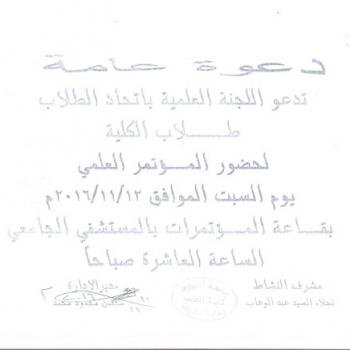 دعوة عامة
تدعو اللجنة العلمية باتحاد الطلاب
طلاب الكلية
لحضور المؤتمر العلمي
يوم السبت الموافق ٢٠١٦/١١/١٢م
بقاعة المؤتمرات بالمستشفي الجامعي
الساعة العاشرة صباحاً
مشرف النشاط
نجلاء السيد عبد الوهاب
مدير الادارة